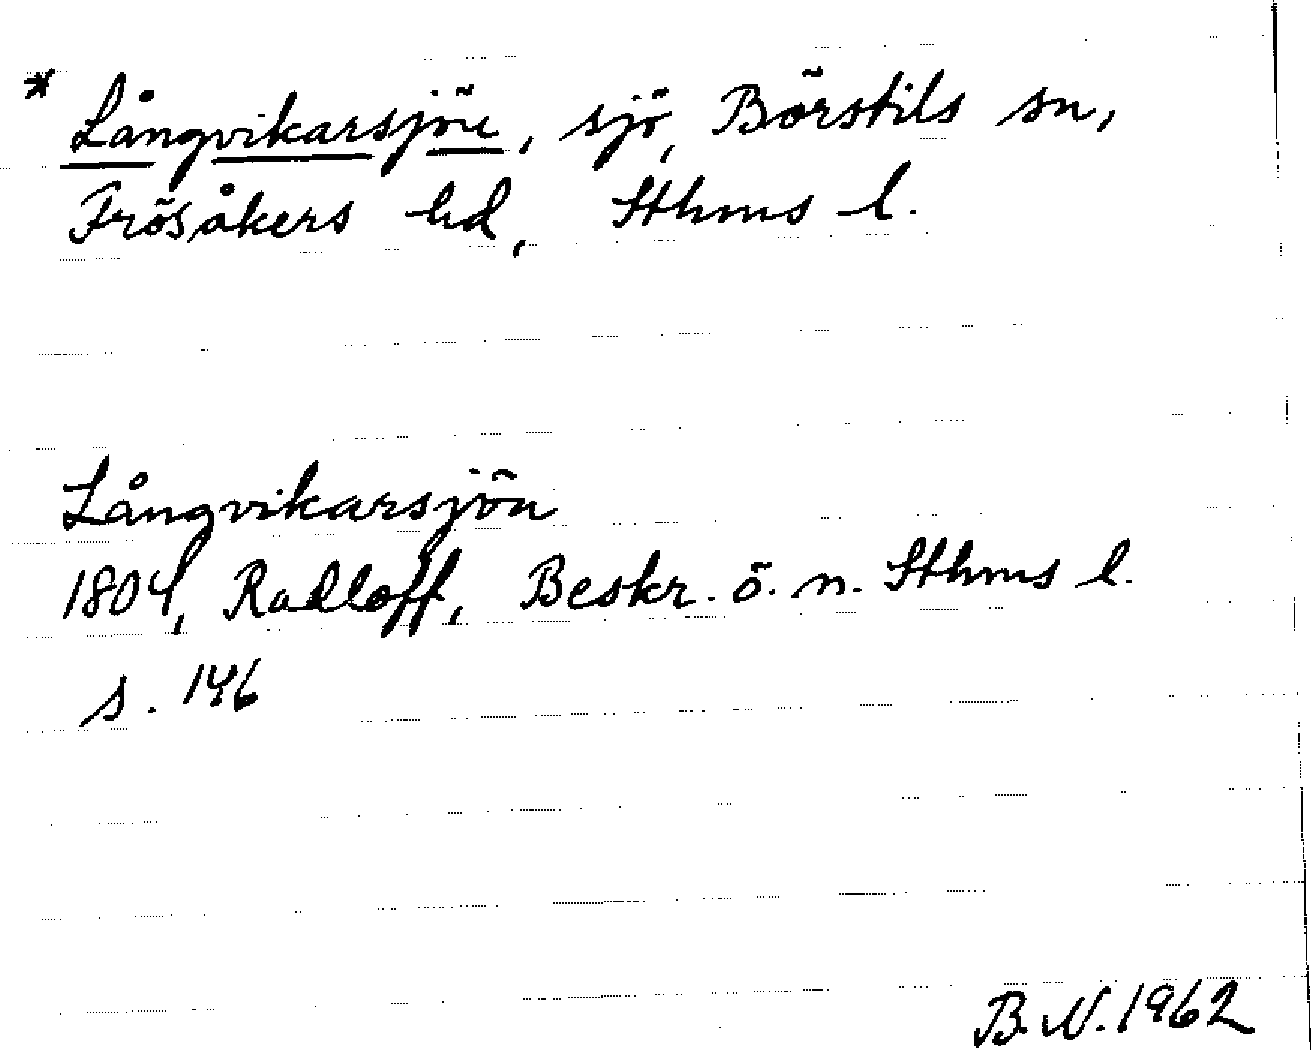 * Långvikarsjön, sjö, Börstils sn,
Frösåkers hd, Sthms l.
Långvikarsjön
1804, Radloff, Beskr. ö. n. Sthms l.
s. 146
B.N. 1962